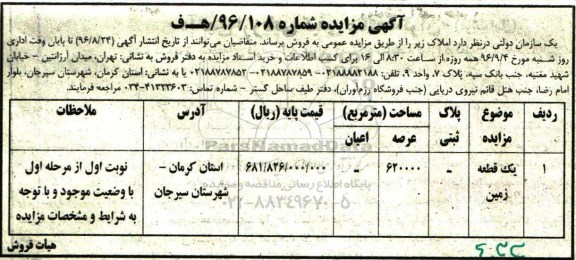 آگهی مزایده شماره ۹۶/۱۰۸/هـف
یک سازمان دولتی درنظر دارد املاک زیر را از طریق مزایده عمومی به فروش برساند. متقاضیان می‌توانند از تاریخ انتشار آگهی (۹۶/۸/۲۴) تا پایان وقت اداری
روز شنبه مورخ ۹۶/۹/۴ همه روزه از ساعت ۸:۳۰ الی ۱۶ برای کسب اطلاعات و خرید اسناد مزایده به دفتر فروش به نشانی: تهران، میدان آرژانتین - خیابان
شهید مغنیه، جنب بانک سپه، پلاک ۷، واحد ۹، تلفن: ۰۲۱۸۸۸۸۲۱۸۸-۰۲۱۸۸۷۸۷۸۵۹-۰۲۱۸۸۷۸۷۸۵۲ یا به نشانی: استان کرمان، شهرستان سیرجان، بلوار
امام رضا، جنب هتل قائم نیروی دریایی (جنب فروشگاه رزم‌آوران)، دفتر طیف ساحل گستر - شماره تماس: ۴۱۳۲۳۶۰۳-۰۳۴ مراجعه فرمایند.
ردیف موضوع مزایده پلاک ثبتی مساحت (مترمربع) عرصه اعیان قیمت پایه (ریال) آدرس ملاحظات
۱ یک قطعه زمین - ۶۲۰۰۰۰ - ۶۸۱/۸۲۶/۰۰۰/۰۰۰ استان کرمان - شهرستان سیرجان نوبت اول از مرحله اول با وضعیت موجود و با توجه به شرایط و مشخصات مزایده
ParsNamadData
پایگاه اطلاع رسانی مناقصه و مزایده
۰۲۱-۸۸۳۴۹۶۷۰-۵
هیات فروش